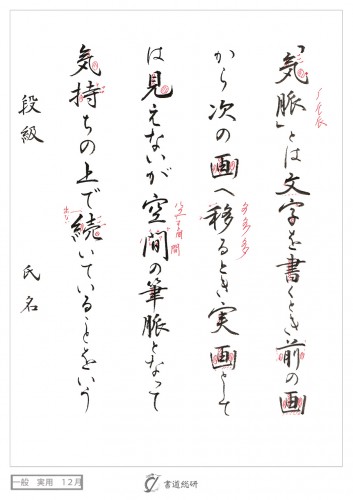 「気脈」とは文字を書くとき前の画
から次の画へ移るとき実画として
は見えないが空間の筆脈となって
気持ちの上で続いていることをいう
段級 氏名
一般 実用 12月
書道総研